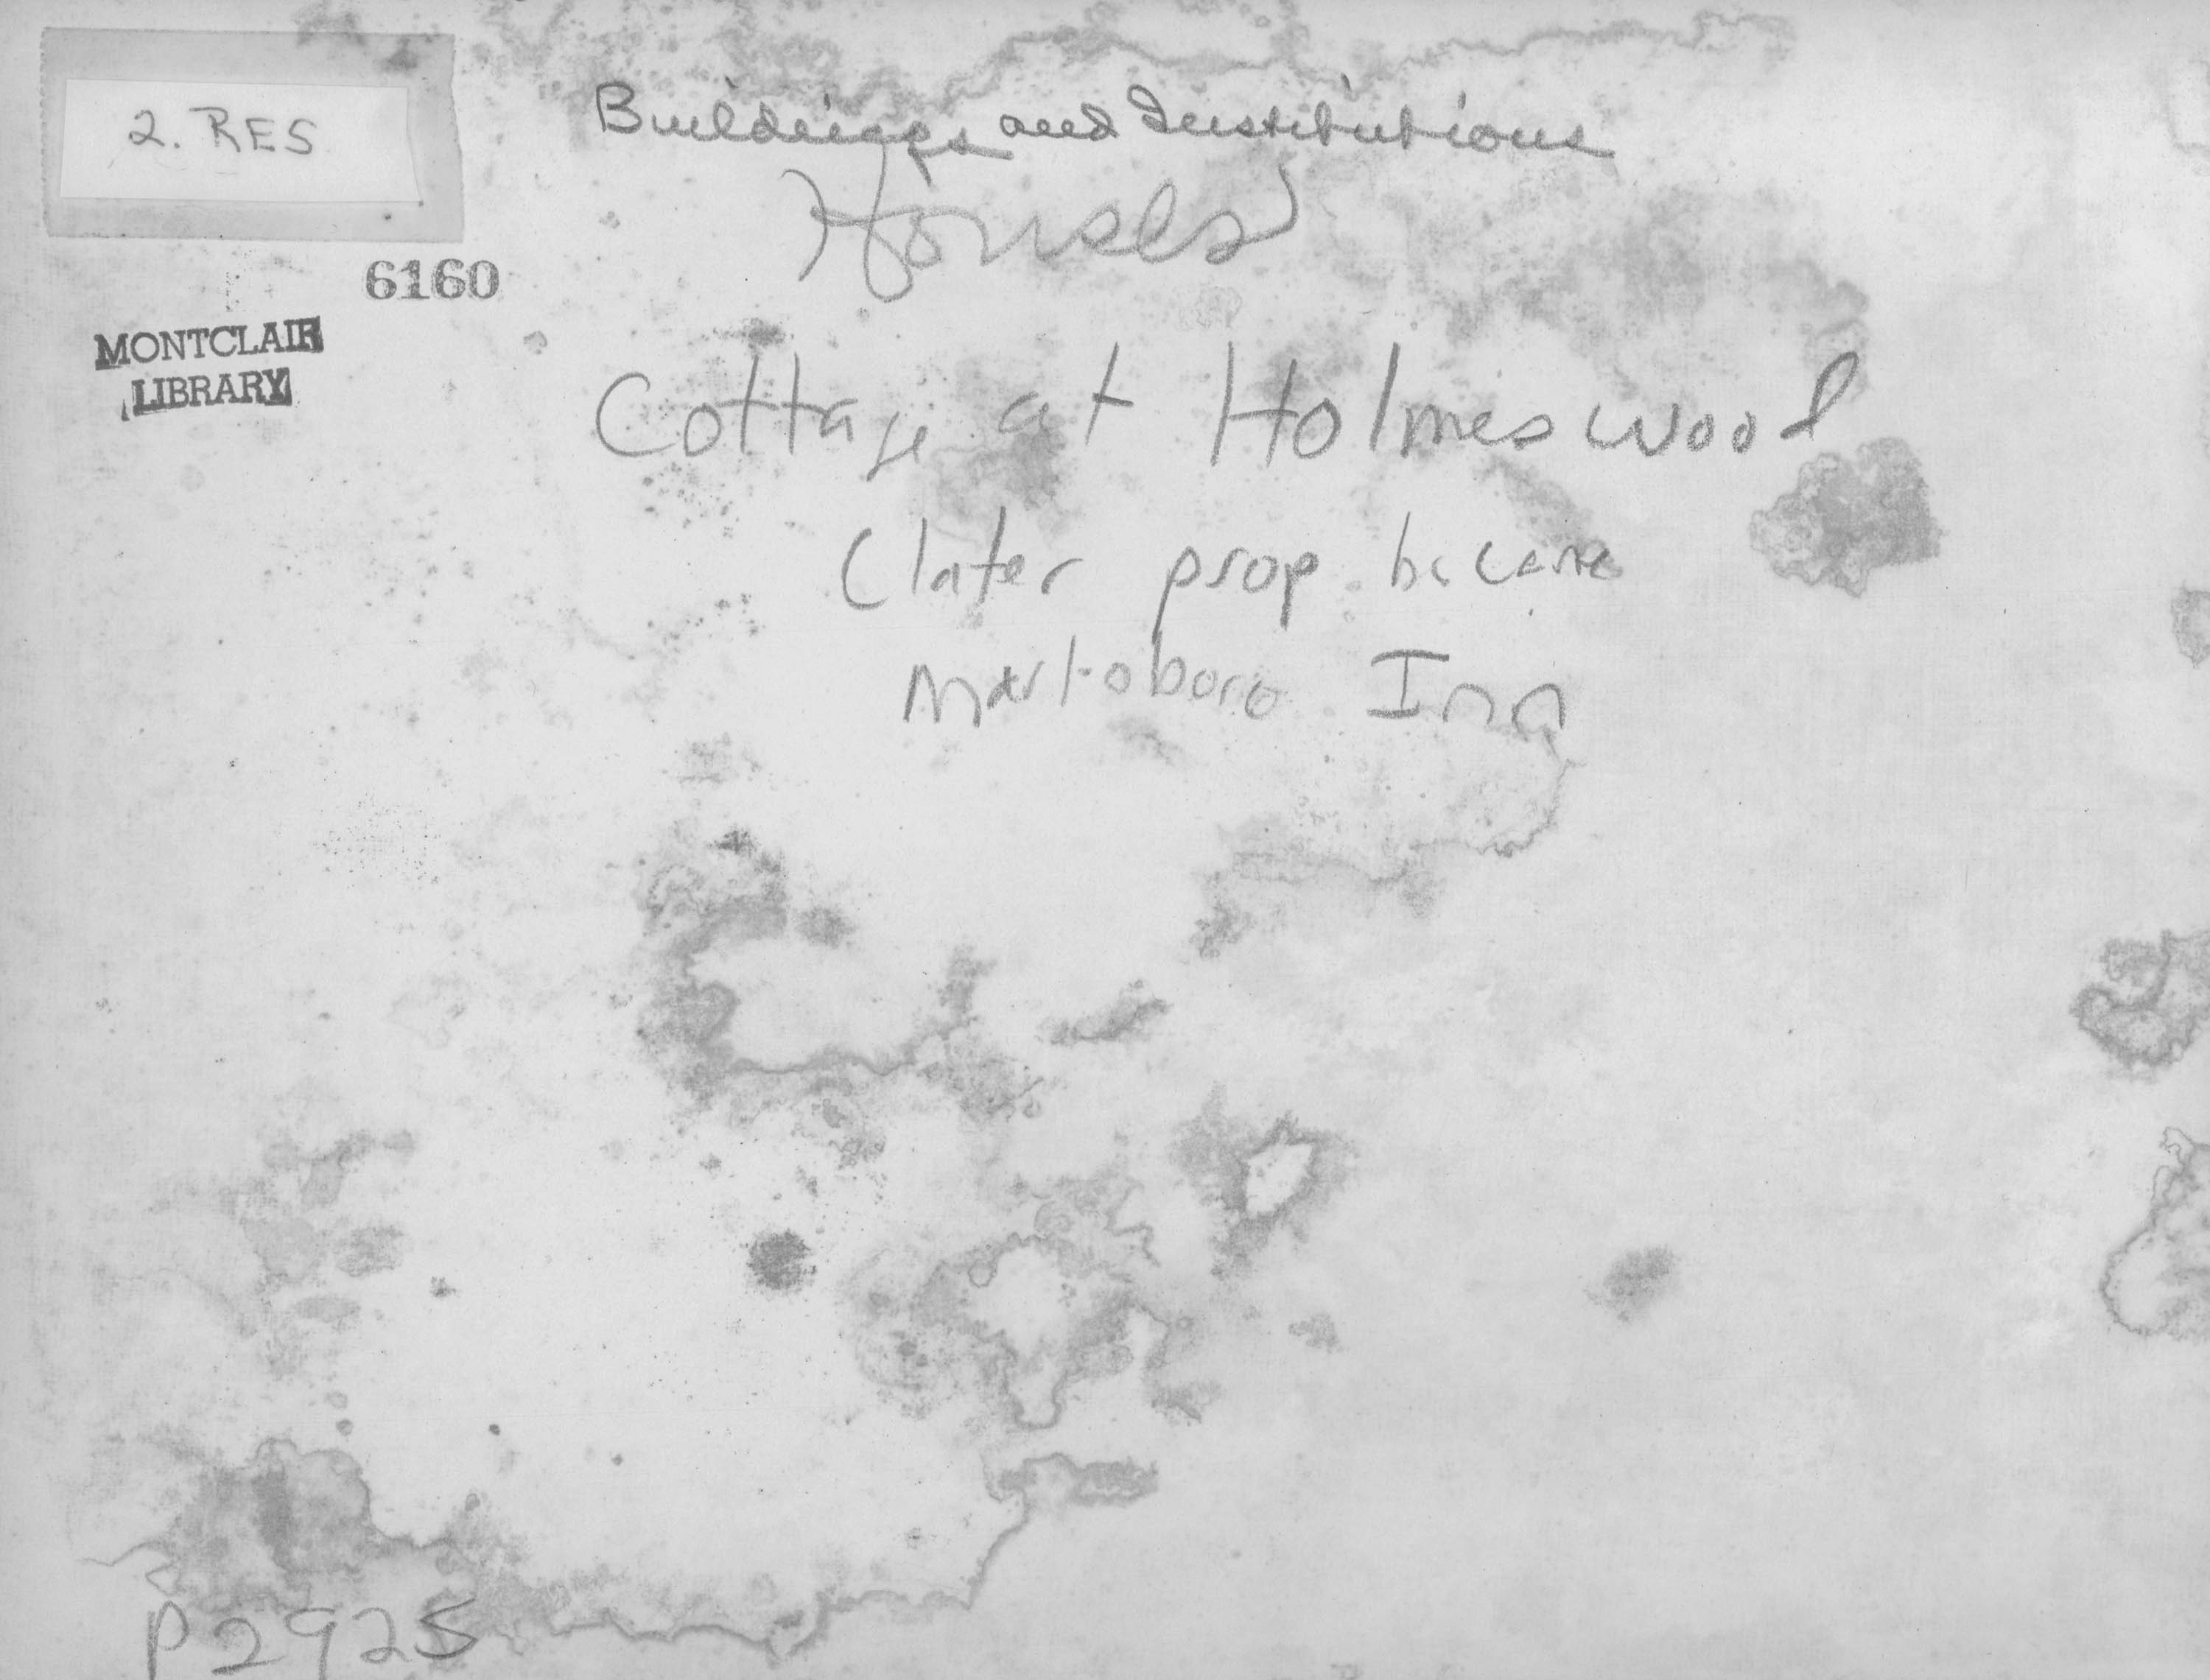 2. RES
Buildings and Institutions
Houses
6160
MONTCLAIR
LIBRARY
Cottage at Holmeswood
(later prop. became
Marlboro Inn
P2925